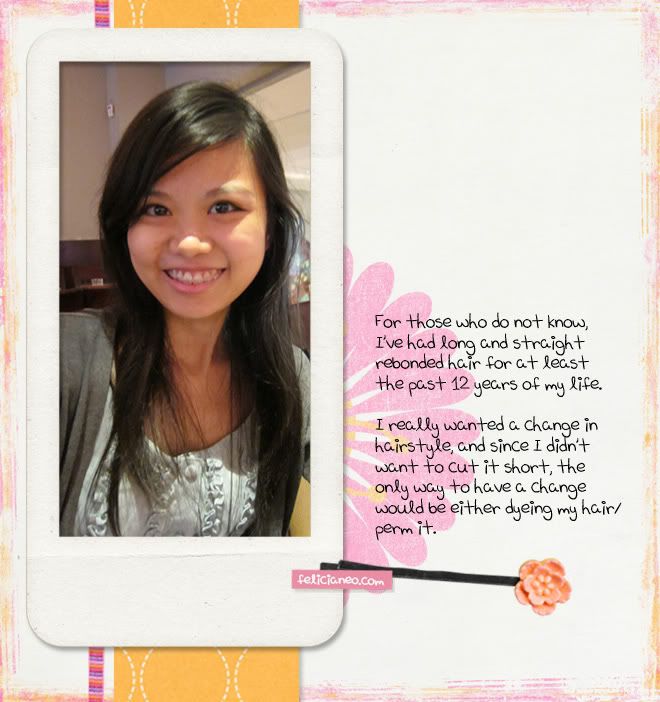 For those who do not know,
I've had long and straight
rebonded hair for at least
the past 12 years of my life.
I really wanted a change in
hairstyle, and since I didn't
want to cut it short, the
only way to have a change
would be either dyeing my hair/
perm it.
felicianeo.com